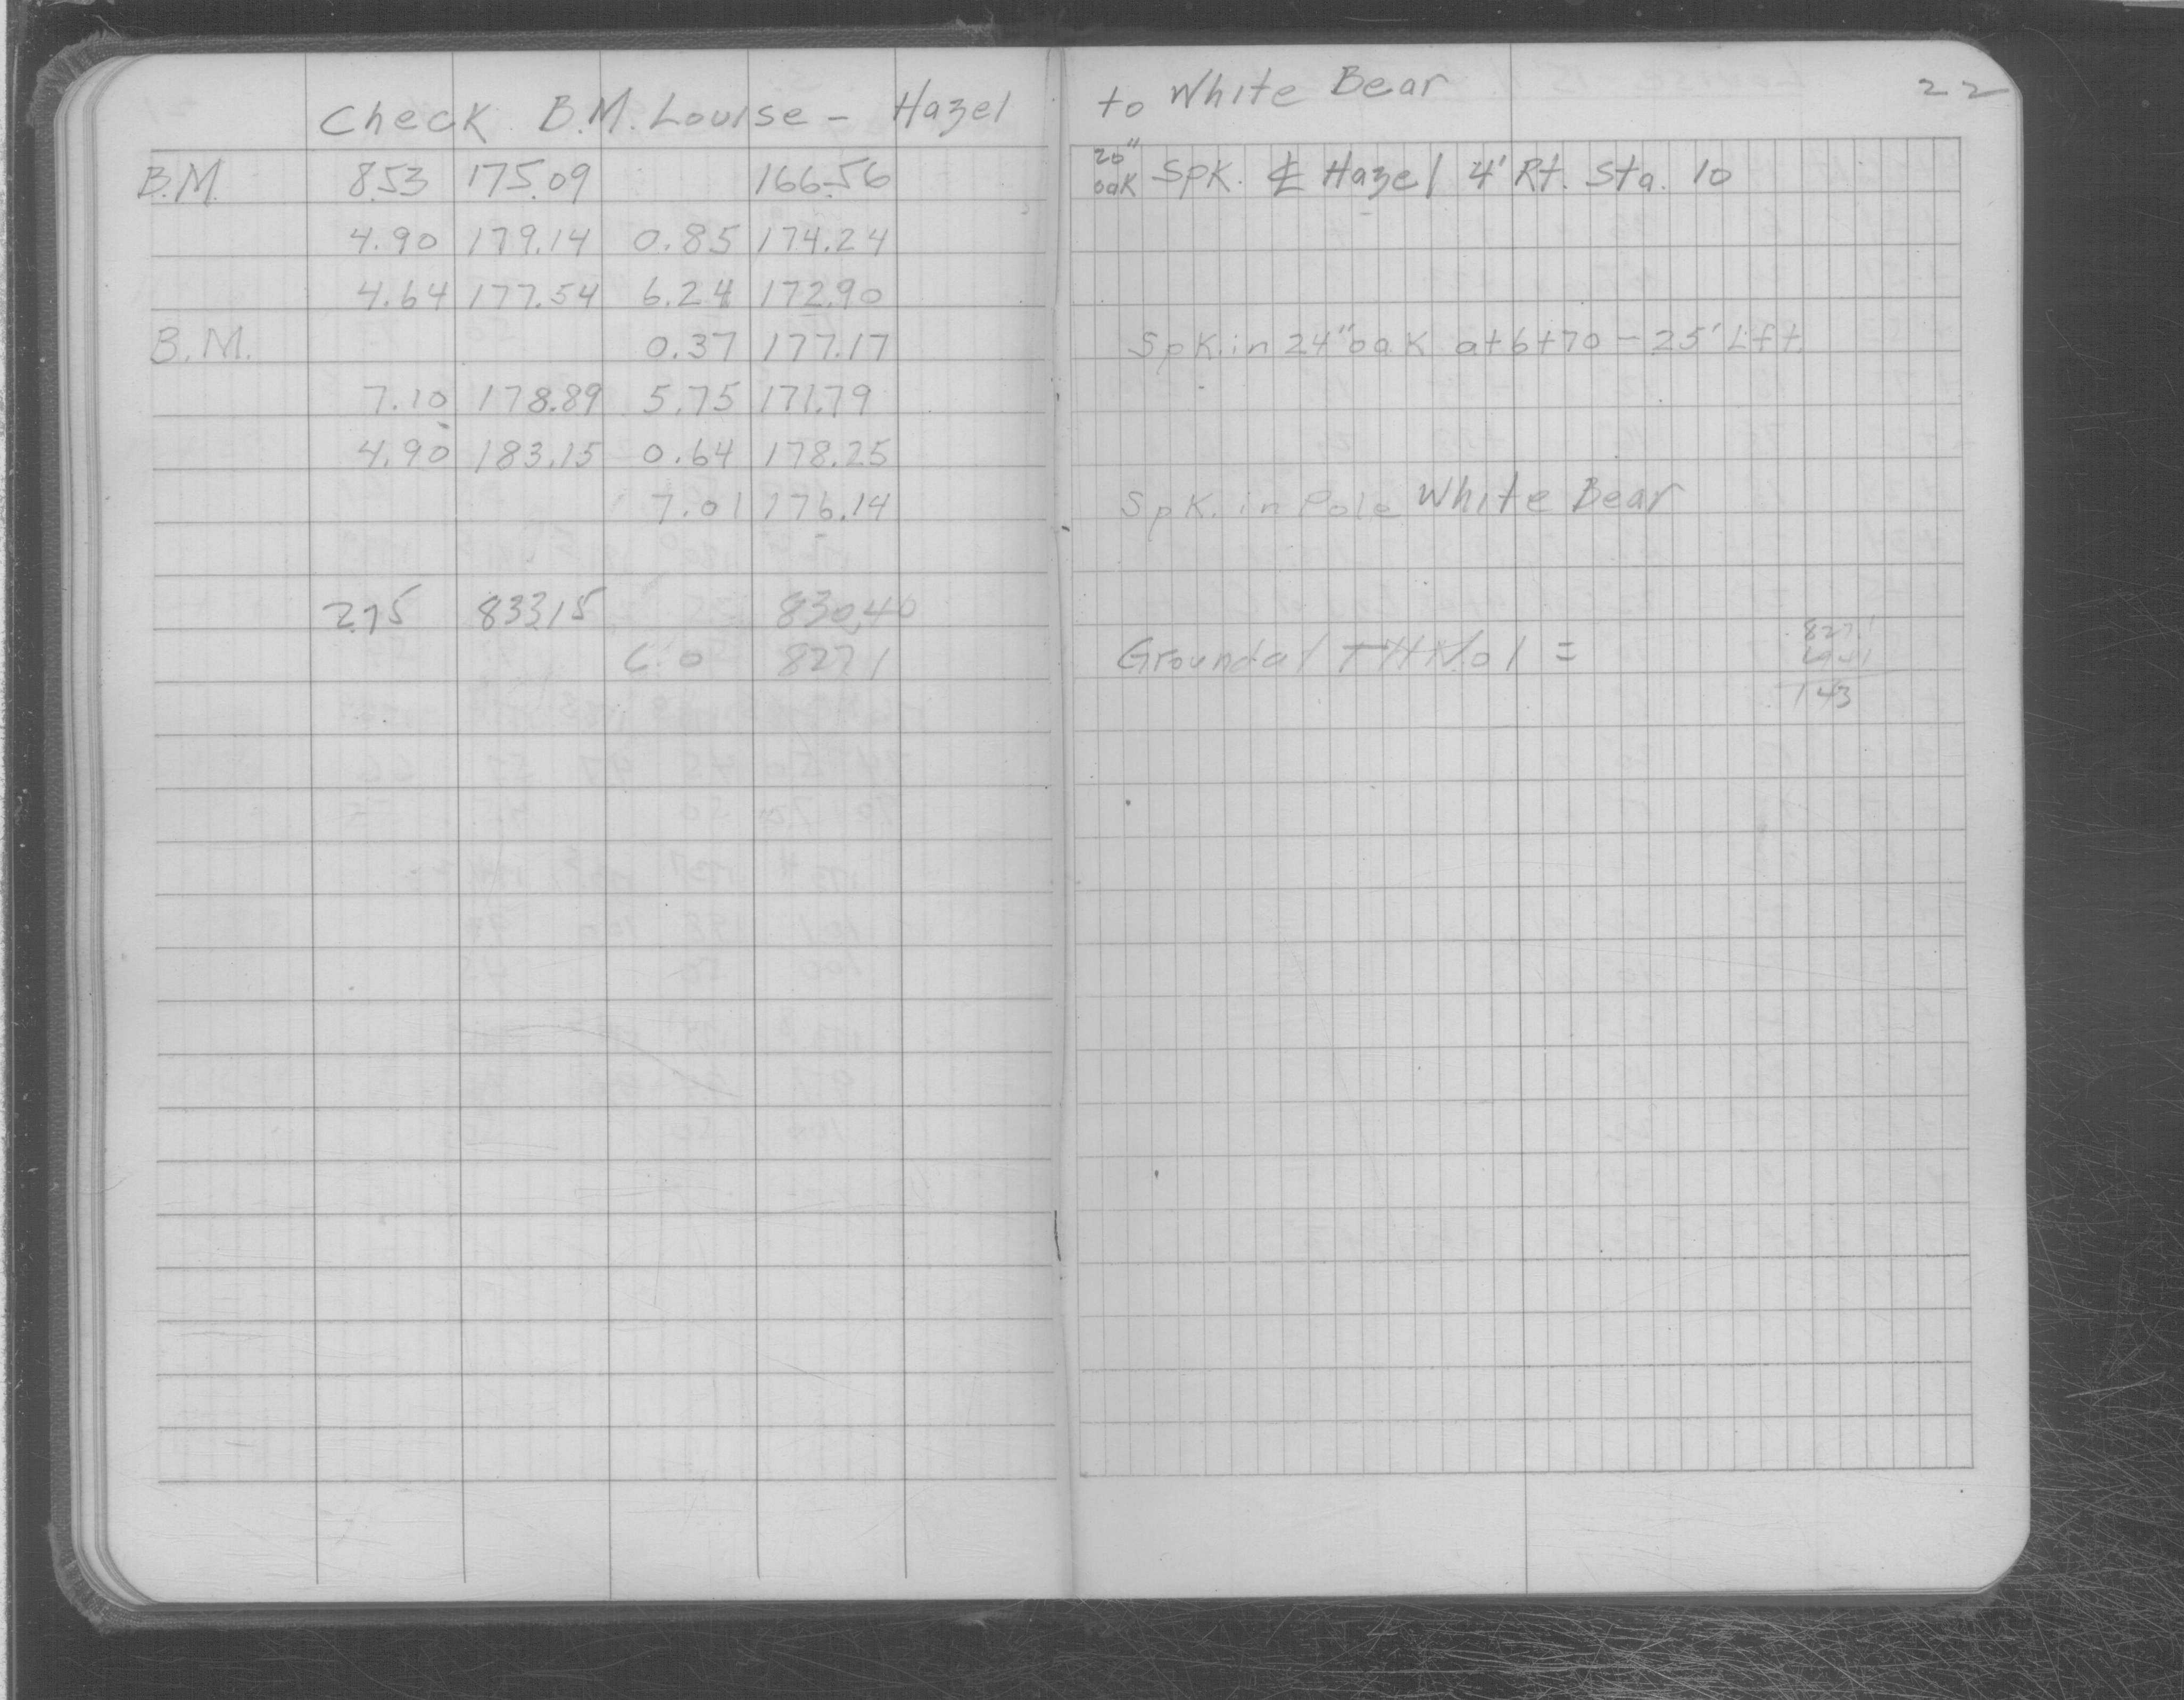 Check B.M. Louise - Hazel to White Bear 22
B.M. 8.53 175.09 166.56 20" oak Spk. ℄ Hazel 4' Rt. Sta. 10
4.90 179.14 0.85 174.24
4.64 177.54 6.24 172.90
B.M. 0.37 177.17 Spk. in 24" oak at 6+70 - 25' Lft.
7.10 178.89 5.75 171.79
4.90 183.15 0.64 178.25
7.01 176.14 Spk. in Pole White Bear
2.75 833.15 830.40
6.0 827.1 Ground at T.H. No 1 = 827.1
143